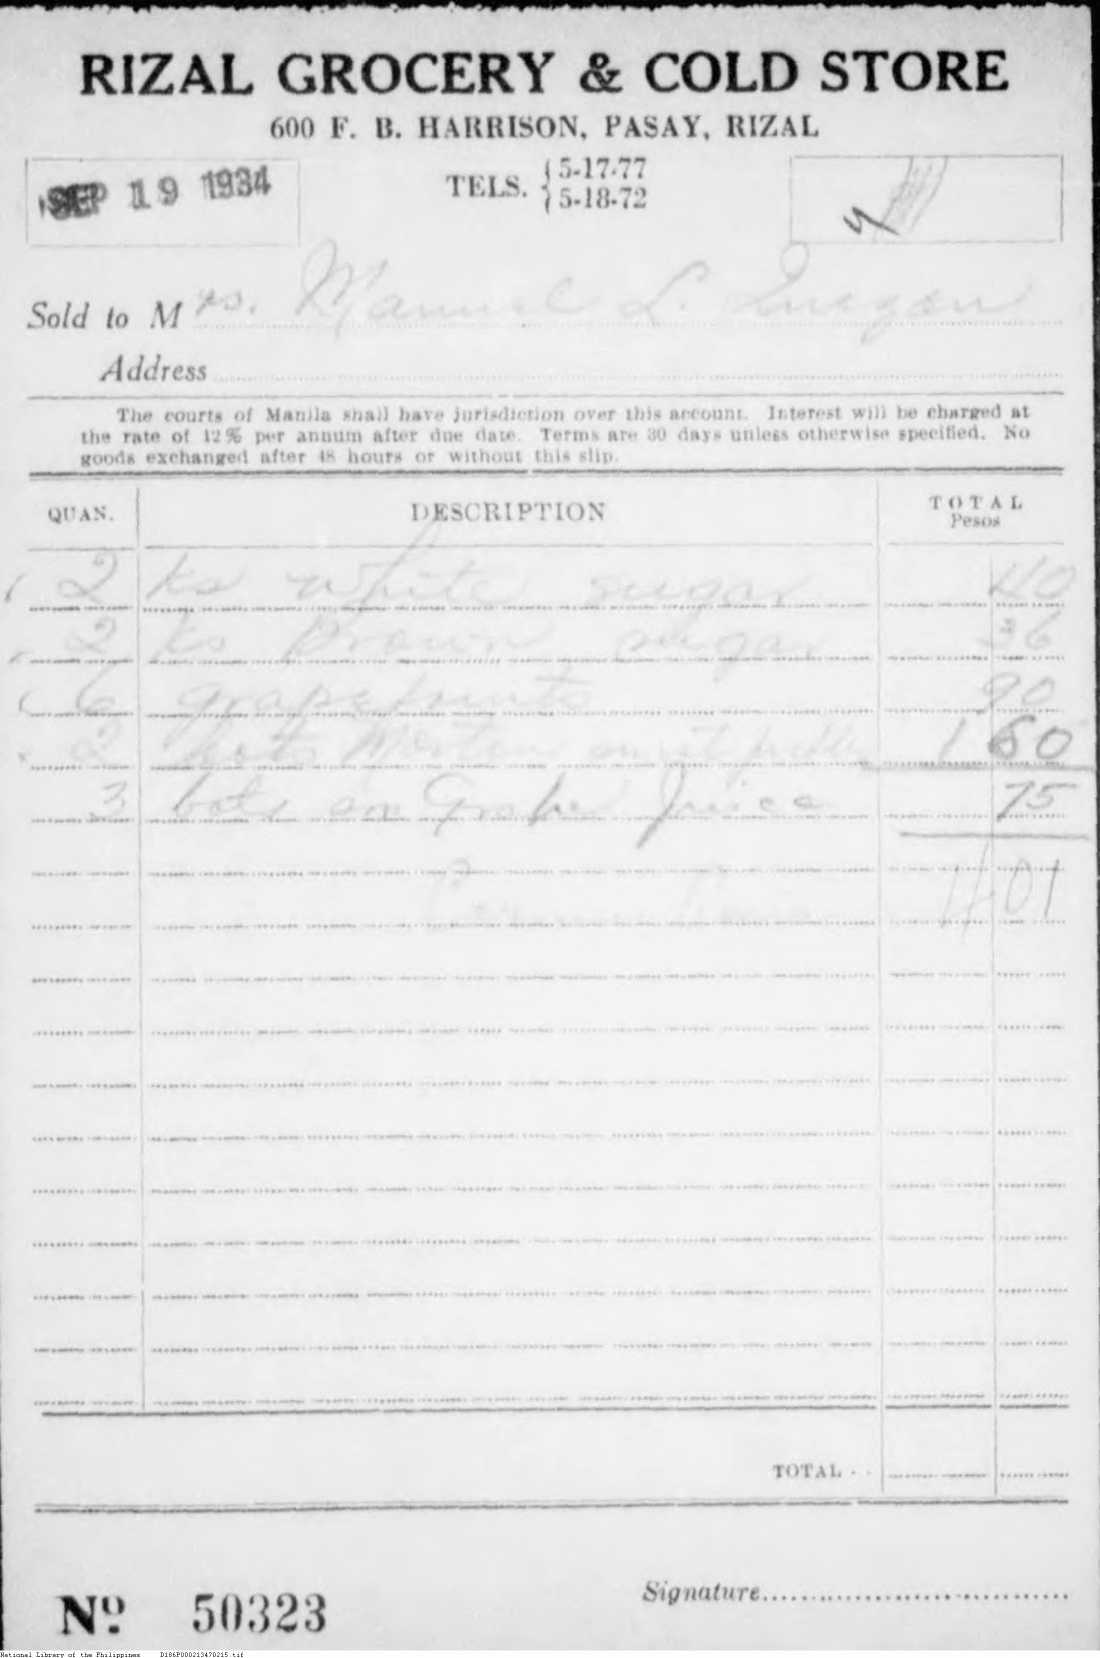 RIZAL GROCERY & COLD STORE
600 F. B. HARRISON, PASAY, RIZAL
SEP 19 1934
TELS. { 5-17-77
{ 5-18-72
Sold to Mrs. Manuel L. Quezon
Address
The courts of Manila shall have jurisdiction over this account. Interest will be charged at
the rate of 12% per annum after due date. Terms are 30 days unless otherwise specified. No
goods exchanged after 48 hours or without this slip.
QUAN. DESCRIPTION TOTAL
Pesos
2 ks white sugar 40
2 ks Brown sugar 36
6 grapefruits 90
2 bots 1 60
3 bots Grape Juice 75
4 01
TOTAL - -
Signature
Nº 50323
National Library of the Philippines D186P000213470215.tif